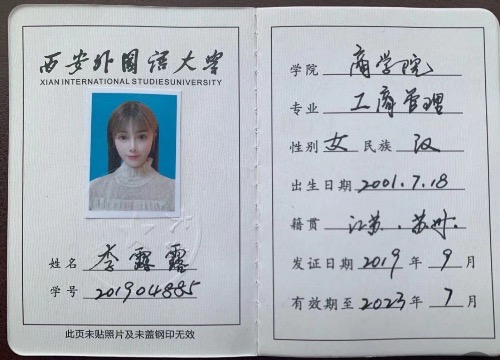 西安外国语大学
XIAN INTERNATIONAL STUDIESUNIVERSITY
姓名 李露露
学号 201904885
此页未贴照片及未盖钢印无效
学院 商学院
专业 工商管理
性别 女 民族 汉
出生日期 2001.7.18
籍贯 江苏.苏州.
发证日期 2019 年 9 月
有效期至 2023 年 7 月